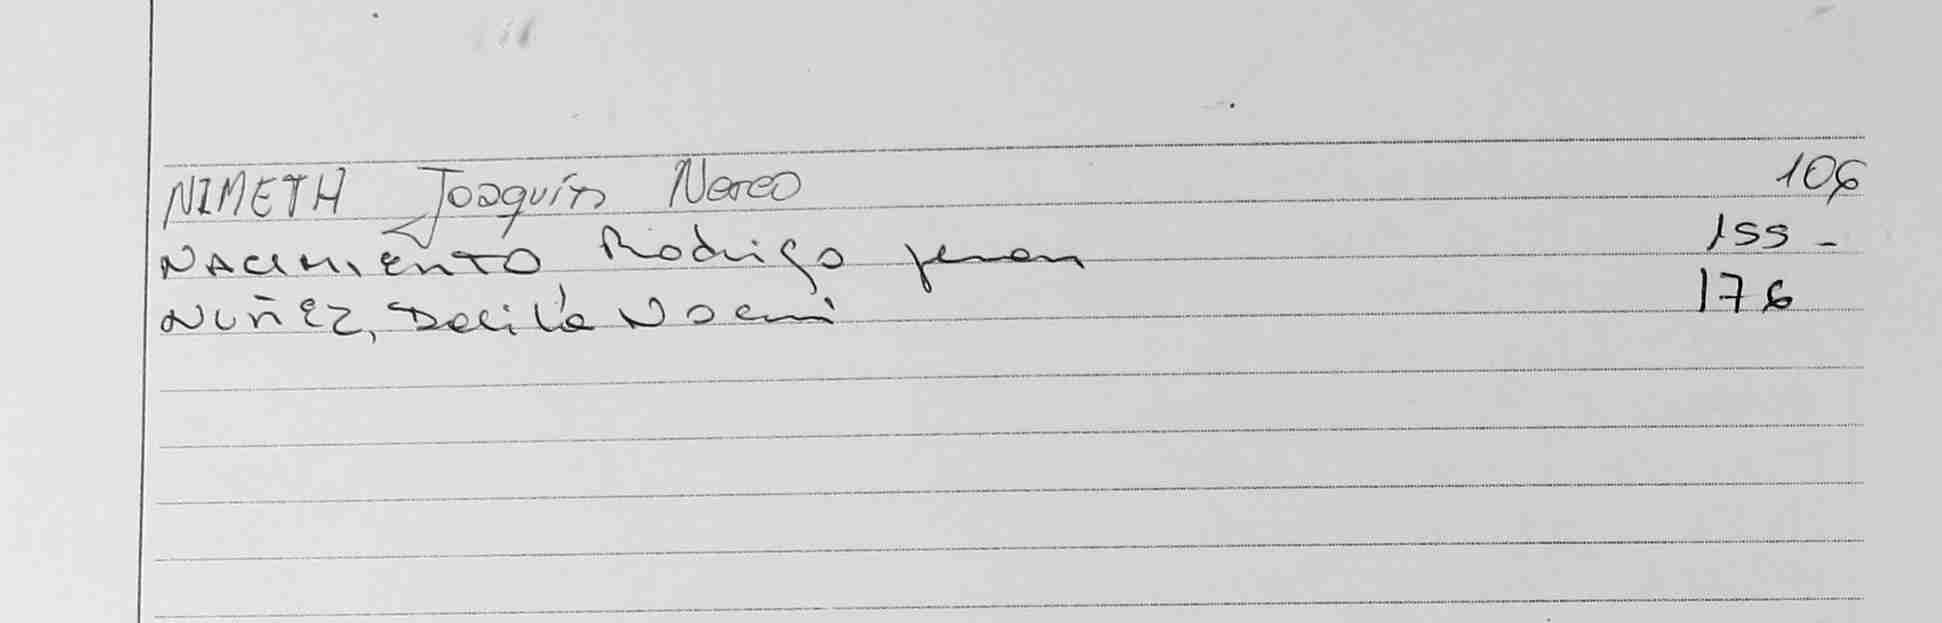 NIMETH Joaquín Nereo 106
NACIMIENTO Rodrigo 155 -
NUÑEZ, Noemi 176